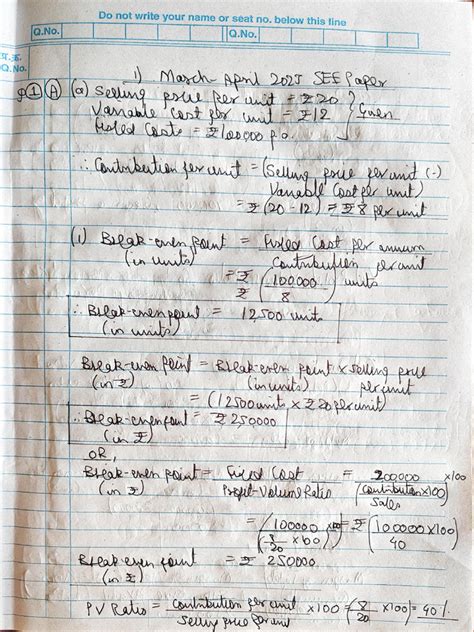 Do not write your name or seat no. below this line
Q.No. Q.No.
प्र.क्र.
Q.No.
1) March-April 2025 SEE Paper
Q1 A (a) Selling price per unit = ₹20
Variable Cost per unit = ₹12 } Given
Fixed Costs = ₹100000 p.a.
∴ Contribution per unit = (Selling price per unit (-)
Variable Cost per unit)
= ₹ (20 - 12) = ₹8 per unit
(1) Break-even point = Fixed Cost per annum
(in units) Contribution per unit
= ₹ (100000) units
₹ 8
∴ Break-even point = 12,500 units
(in units)
Break-even point = Break-even point × selling price
(in ₹) (in units) per unit
= (12500 units × ₹20 per unit)
∴ Break-even point = ₹250000
(in ₹)
OR,
Break-even point = Fixed Cost = 200,000 ×100
(in ₹) Profit-Volume Ratio (Contribution×100)
Sales
= (100000 ×100 = ₹ (100000×100)
(8/20 × 100) 40
Break even point = ₹ 250000.
(in ₹)
PV Ratio = Contribution per unit × 100 = (8/20 × 100) = 40 %.
Selling price per unit